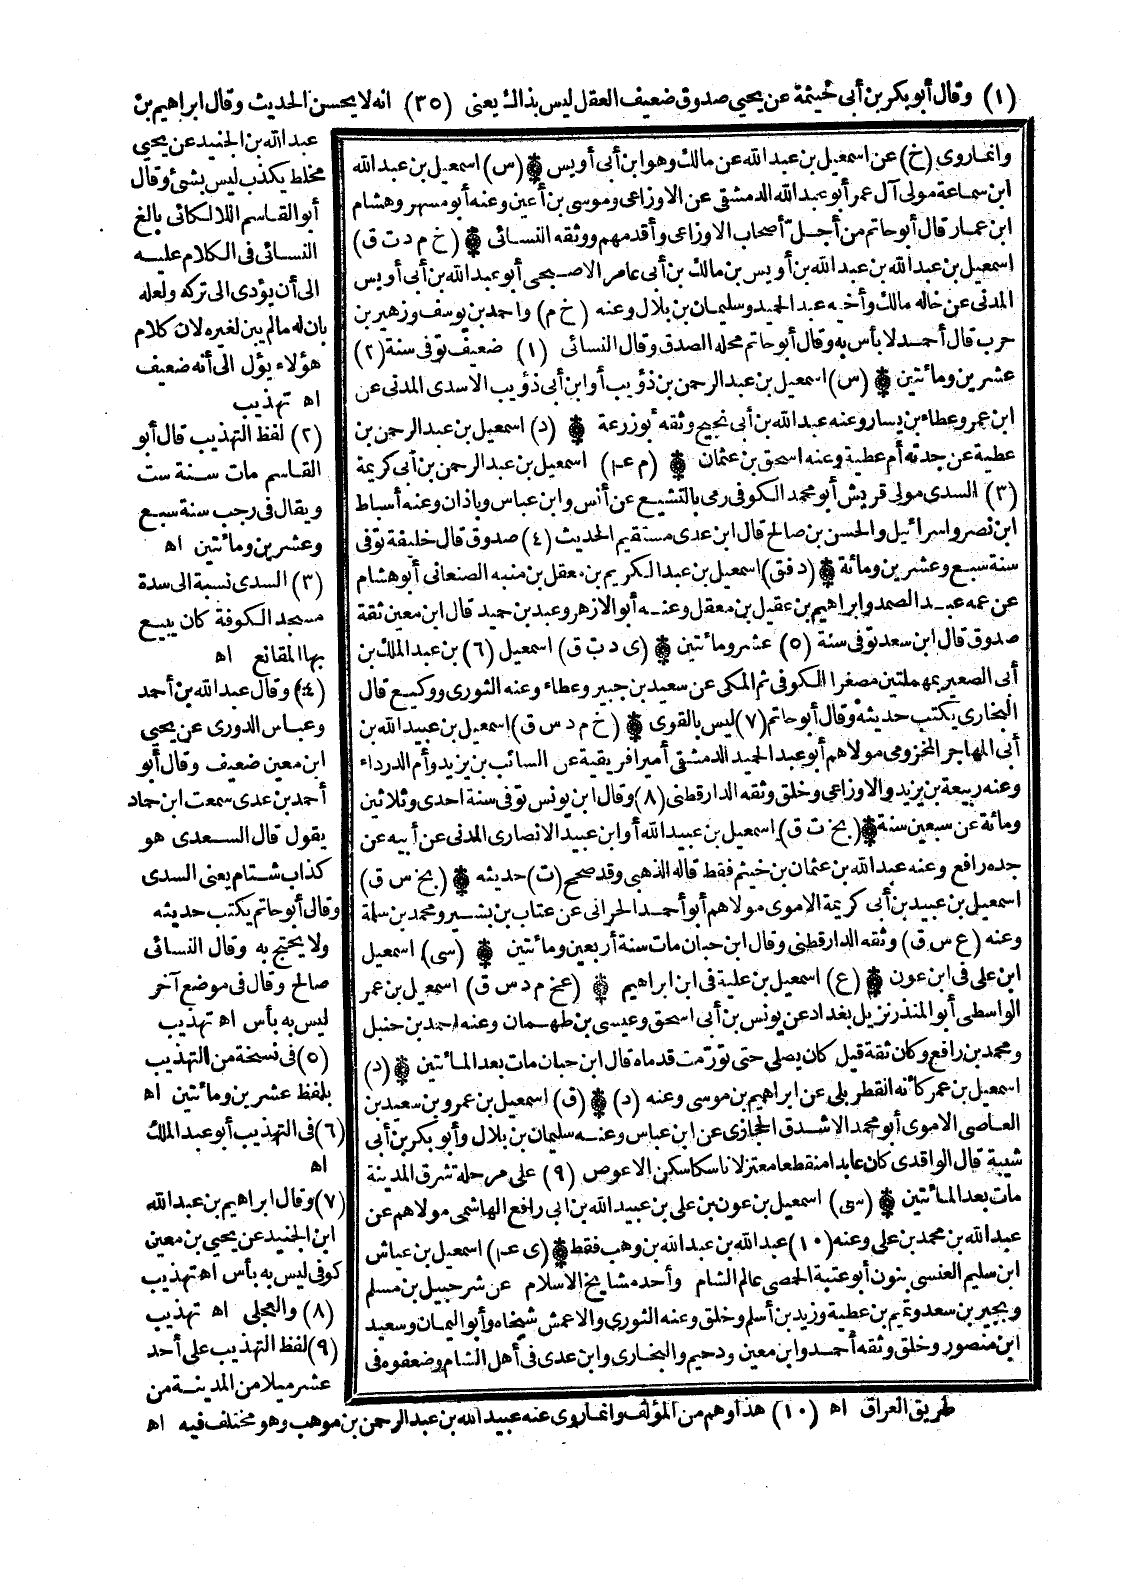 (١) وقال أبو بكر بن أبى خيثمة عن يحيى صدوق ضعيف العقل ليس بذاك يعنى (٣٥) انه لا يحسن الحديث وقال ابراهيم بن
عبد الله بن الجنيد عن يحيى
مخلط يكذب ليس بشئ وقال
أبو القاسم اللالكائى بالغ
النسائى فى الكلام عليه
الى أن يؤدى الى تركه ولعله
بان له مالم يبن لغيره لان كلام
هؤلاء يؤل الى أنه ضعيف
اه تهذيب
(٢) لفظ التهذيب قال أبو
القاسم مات سنة ست
ويقال فى رجب سنة سبع
وعشرين ومائتين اه
(٣) السدى نسبة الى سدة
مسجد الكوفة كان يبيع
بها المقانع اه
(٤) وقال عبد الله بن أحمد
وعباس الدورى عن يحيى
ابن معين ضعيف وقال أبو
أحمد بن عدى سمعت ابن حماد
يقول قال السعدى هو
كذاب شتام يعنى السدى
وقال أبو حاتم يكتب حديثه
ولا يحتج به وقال النسائى
صالح وقال فى موضع آخر
ليس به بأس اه تهذيب
(٥) فى نسخة من التهذيب
بلفظ عشرين ومائتين اه
(٦) فى التهذيب أبو عبد الملك
اه
(٧) وقال ابراهيم بن عبد الله
ابن الجنيد عن يحيى بن معين
كوفى ليس به بأس اه تهذيب
(٨) والعجلى اه تهذيب
(٩) لفظ التهذيب على أحد
عشر ميلا من المدينة من
طريق العراق اه (١٠) هذا وهم من المؤلف وانما روى عنه عبيد الله بن عبد الرحمن بن موهب وهو مختلف فيه اه
وانما روى (خ) عن اسمعيل بن عبد الله عن مالك وهو ابن أبى أويس ۞ (س) اسمعيل بن عبد الله
ابن سماعة مولى آل عمر أبو عبد الله الدمشقى عن الاوزاعى وموسى بن أعين وعنه أبو مسهر وهشام
ابن عمار قال أبو حاتم من أجلّ أصحاب الاوزاعى وأقدمهم ووثقه النسائى ۞ (خ م د ت ق)
اسمعيل بن عبد الله بن عبد الله بن أويس بن مالك بن أبى عامر الاصبحى أبو عبد الله بن أبى أويس
المدنى عن خاله مالك وأخيه عبد الحميد وسليمان بن بلال وعنه (خ م) واحمد بن يوسف وزهير بن
حرب قال أحمد لا بأس به وقال أبو حاتم محله الصدق وقال النسائى (١) ضعيف توفى سنة (٢)
عشرين ومائتين ۞ (س) اسمعيل بن عبد الرحمن بن ذؤيب أو ابن أبى ذؤيب الاسدى المدنى عن
ابن عمر وعطاء بن يسار وعنه عبد الله بن أبى نجيح وثقه أبو زرعة ۞ (د) اسمعيل بن عبد الرحمن بن
عطية عن جدته أم عطية وعنه اسحق بن عثمان ۞ (م عـ) اسمعيل بن عبد الرحمن بن أبى كريمة
(٣) السدى مولى قريش أبو محمد الكوفى رمى بالتشيع عن أنس وابن عباس وباذان وعنه أسباط
ابن نصر واسرائيل والحسن بن صالح قال ابن عدى مستقيم الحديث (٤) صدوق قال خليفة توفى
سنة سبع وعشرين ومائة ۞ (د فق) اسمعيل بن عبد الكريم بن معقل بن منبه الصنعانى أبو هشام
عن عمه عبد الصمد وابراهيم بن عقيل بن معقل وعنه أبو الازهر وعبد بن حميد قال ابن معين ثقة
صدوق قال ابن سعد توفى سنة (٥) عشر ومائتين ۞ (ى د ت ق) اسمعيل (٦) بن عبد الملك بن
أبى الصعير بمهملتين مصغرا الكوفى ثم المكى عن سعيد بن جبير وعطاء وعنه الثورى ووكيع قال
البخارى يكتب حديثه وقال أبو حاتم (٧) ليس بالقوى ۞ (خ م د س ق) اسمعيل بن عبيد الله بن
أبى المهاجر المخزومى مولاهم أبو عبد الحميد الدمشقى أمير افريقية عن السائب بن يزيد وأم الدرداء
وعنه ربيعة بن يزيد والاوزاعى وخلق وثقه الدارقطنى (٨) وقال ابن يونس توفى سنة احدى وثلاثين
ومائة عن سبعين سنة ۞ (بخ ت ق) اسمعيل بن عبيد الله أو ابن عبيد الانصارى المدنى عن أبيه عن
جده رافع وعنه عبد الله بن عثمان بن خثيم فقط قاله الذهبى وقد صحح (ت) حديثه ۞ (بخ س ق)
اسمعيل بن عبيد بن أبى كريمة الاموى مولاهم أبو أحمد الحرانى عن عتاب بن بشير ومحمد بن سلمة
وعنه (ع س ق) وثقه الدارقطنى وقال ابن حبان مات سنة أربعين ومائتين ۞ (سى) اسمعيل
ابن على فى ابن عون ۞ (ع) اسمعيل بن علية فى ابن ابراهيم ۞ (عخ م د س ق) اسمعيل بن عمر
الواسطى أبو المنذر نزيل بغداد عن يونس بن أبى اسحق وعيسى بن طهمان وعنه احمد بن حنبل
ومحمد بن رافع وكان ثقة قيل كان يصلى حتى تورّمت قدماه قال ابن حبان مات بعد المائتين ۞ (د)
اسمعيل بن عمر كأنه القطربلى عن ابراهيم بن موسى وعنه (د) ۞ (ق) اسمعيل بن عمرو بن سعيد بن
العاصى الاموى أبو محمد الاشدق الحجازى عن ابن عباس وعنه سليمان بن بلال وأبو بكر بن أبى
شيبة قال الواقدى كان عابدا منقطعا معتزلا ناسكا سكن الاعوص (٩) على مرحلة شرق المدينة
مات بعد المائتين ۞ (سى) اسمعيل بن عون بن على بن عبيد الله بن ابى رافع الهاشمى مولاهم عن
عبد الله بن محمد بن على وعنه (١٠) عبد الله بن عبد الله بن وهب فقط ۞ (ى عـ) اسمعيل بن عياش
ابن سليم العنسى بنون أبو عتبة الحمصى عالم الشام وأحد مشايخ الاسلام عن شرحبيل بن مسلم
وبحير بن سعد وتميم بن عطية وزيد بن أسلم وخلق وعنه الثورى والاعمش شيخاه وأبو اليمان وسعيد
ابن منصور وخلق وثقه أحمد وابن معين ودحيم والبخارى وابن عدى فى أهل الشام وضعفوه فى